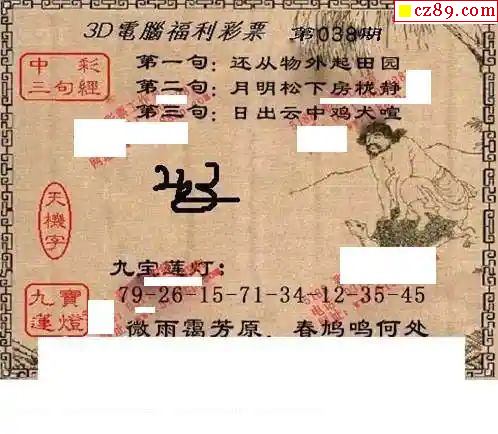 cz89.com
3D電腦福利彩票 第038期
中彩
三句經
第一句：还从物外起田园
第二句：月明松下房栊静
第三句：日出云中鸡犬喧
天機字
九宝莲灯：
九寶
蓮燈
79-26-15-71-34-12-35-45
微雨霭芳原，春鸠鸣何处